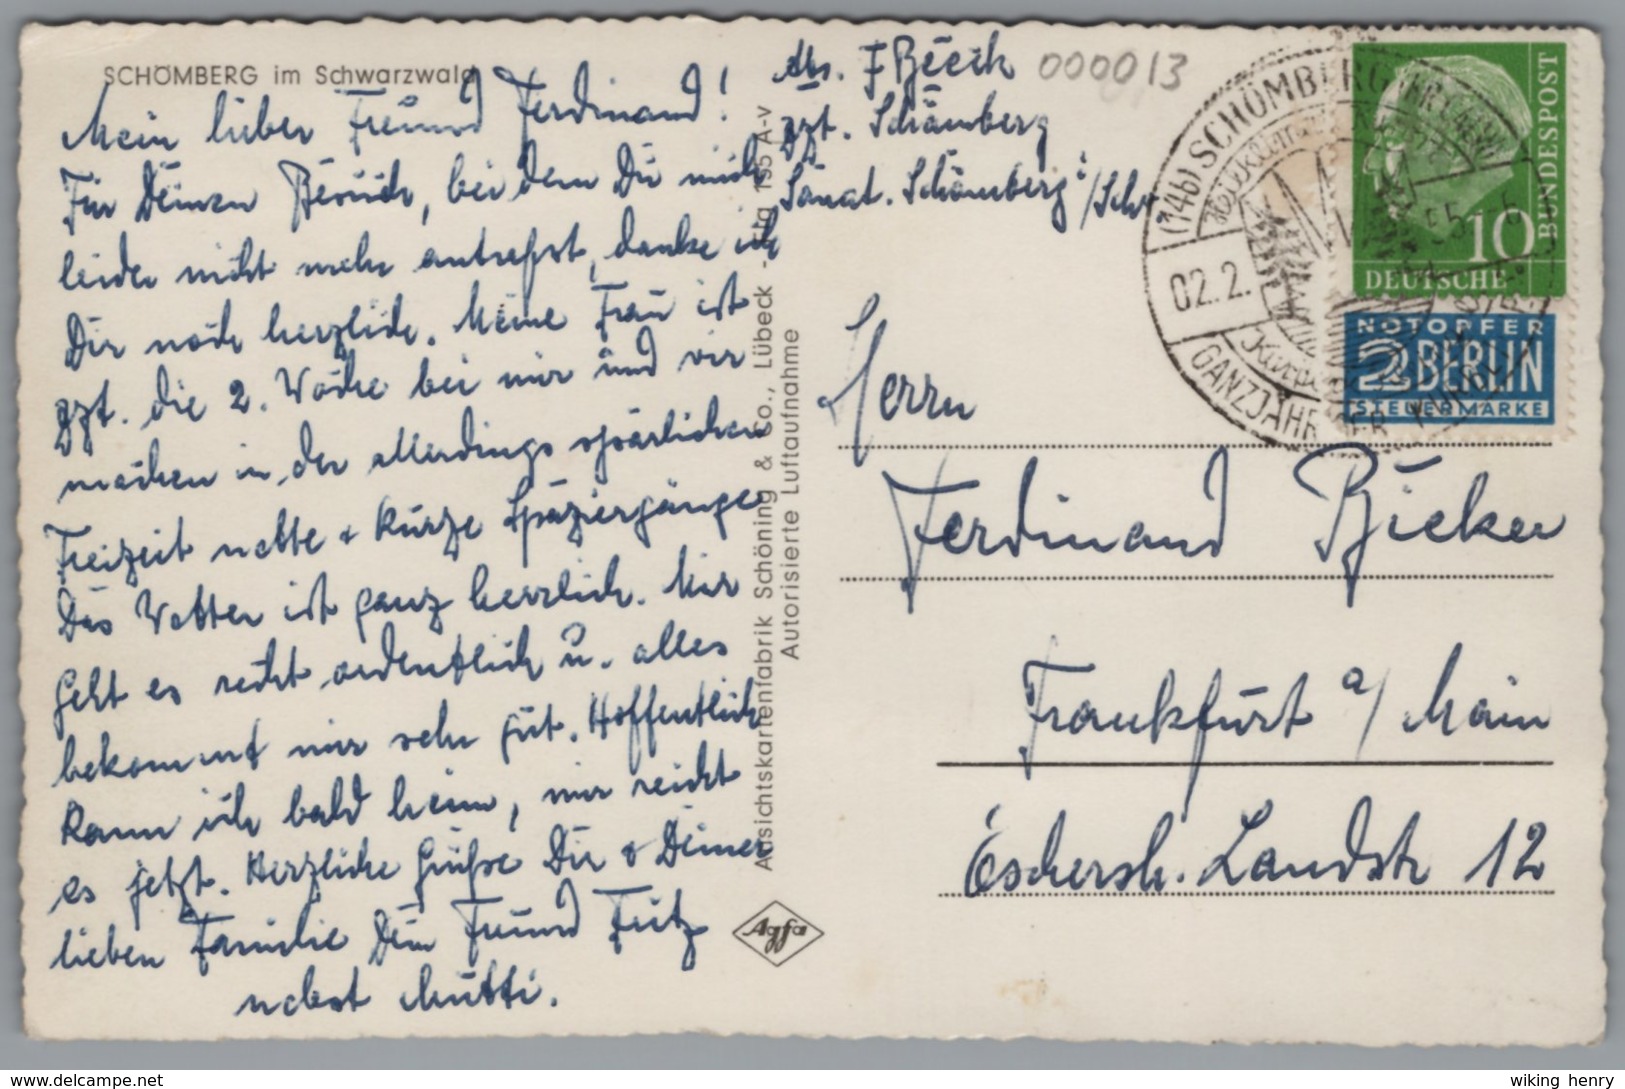 SCHÖMBERG im Schwarzwald
Mein lieber Freund Ferdinand!
Für Deinen Besuch, bei dem Du mich
leider nicht mehr antrafst, danke ich
Dir noch herzlich. Meine Frau ist
zzt. die 2. Woche bei mir und wir
machen in der allerdings spärlichen
Freizeit nette + kurze Spaziergänge
Das Wetter ist ganz herrlich. Mir
geht es recht ordentlich u. alles
bekommt mir sehr gut. Hoffentlich
kann ich bald heim, mir reicht
es jetzt. Herzliche Grüße Dir & Deiner
lieben Familie Dein Freund Fritz
nebst Mutti.
Ansichtskartenfabrik Schöning & Co., Lübeck
155 A-v
Autorisierte Luftaufnahme
Agfa
Abs. F
000013
zzt. Schömberg
Sanat. Schömberg i/Schw
(14b) SCHÖMBERG
02.2.
55
GANZJÄHR
10
DEUTSCHE
BUNDESPOST
NOTOPFER
2 BERLIN
STEUERMARKE
Herrn
Ferdinand
Frankfurt a/Main
Eschersh. Landstr 12
wiking henry
www.delcampe.net